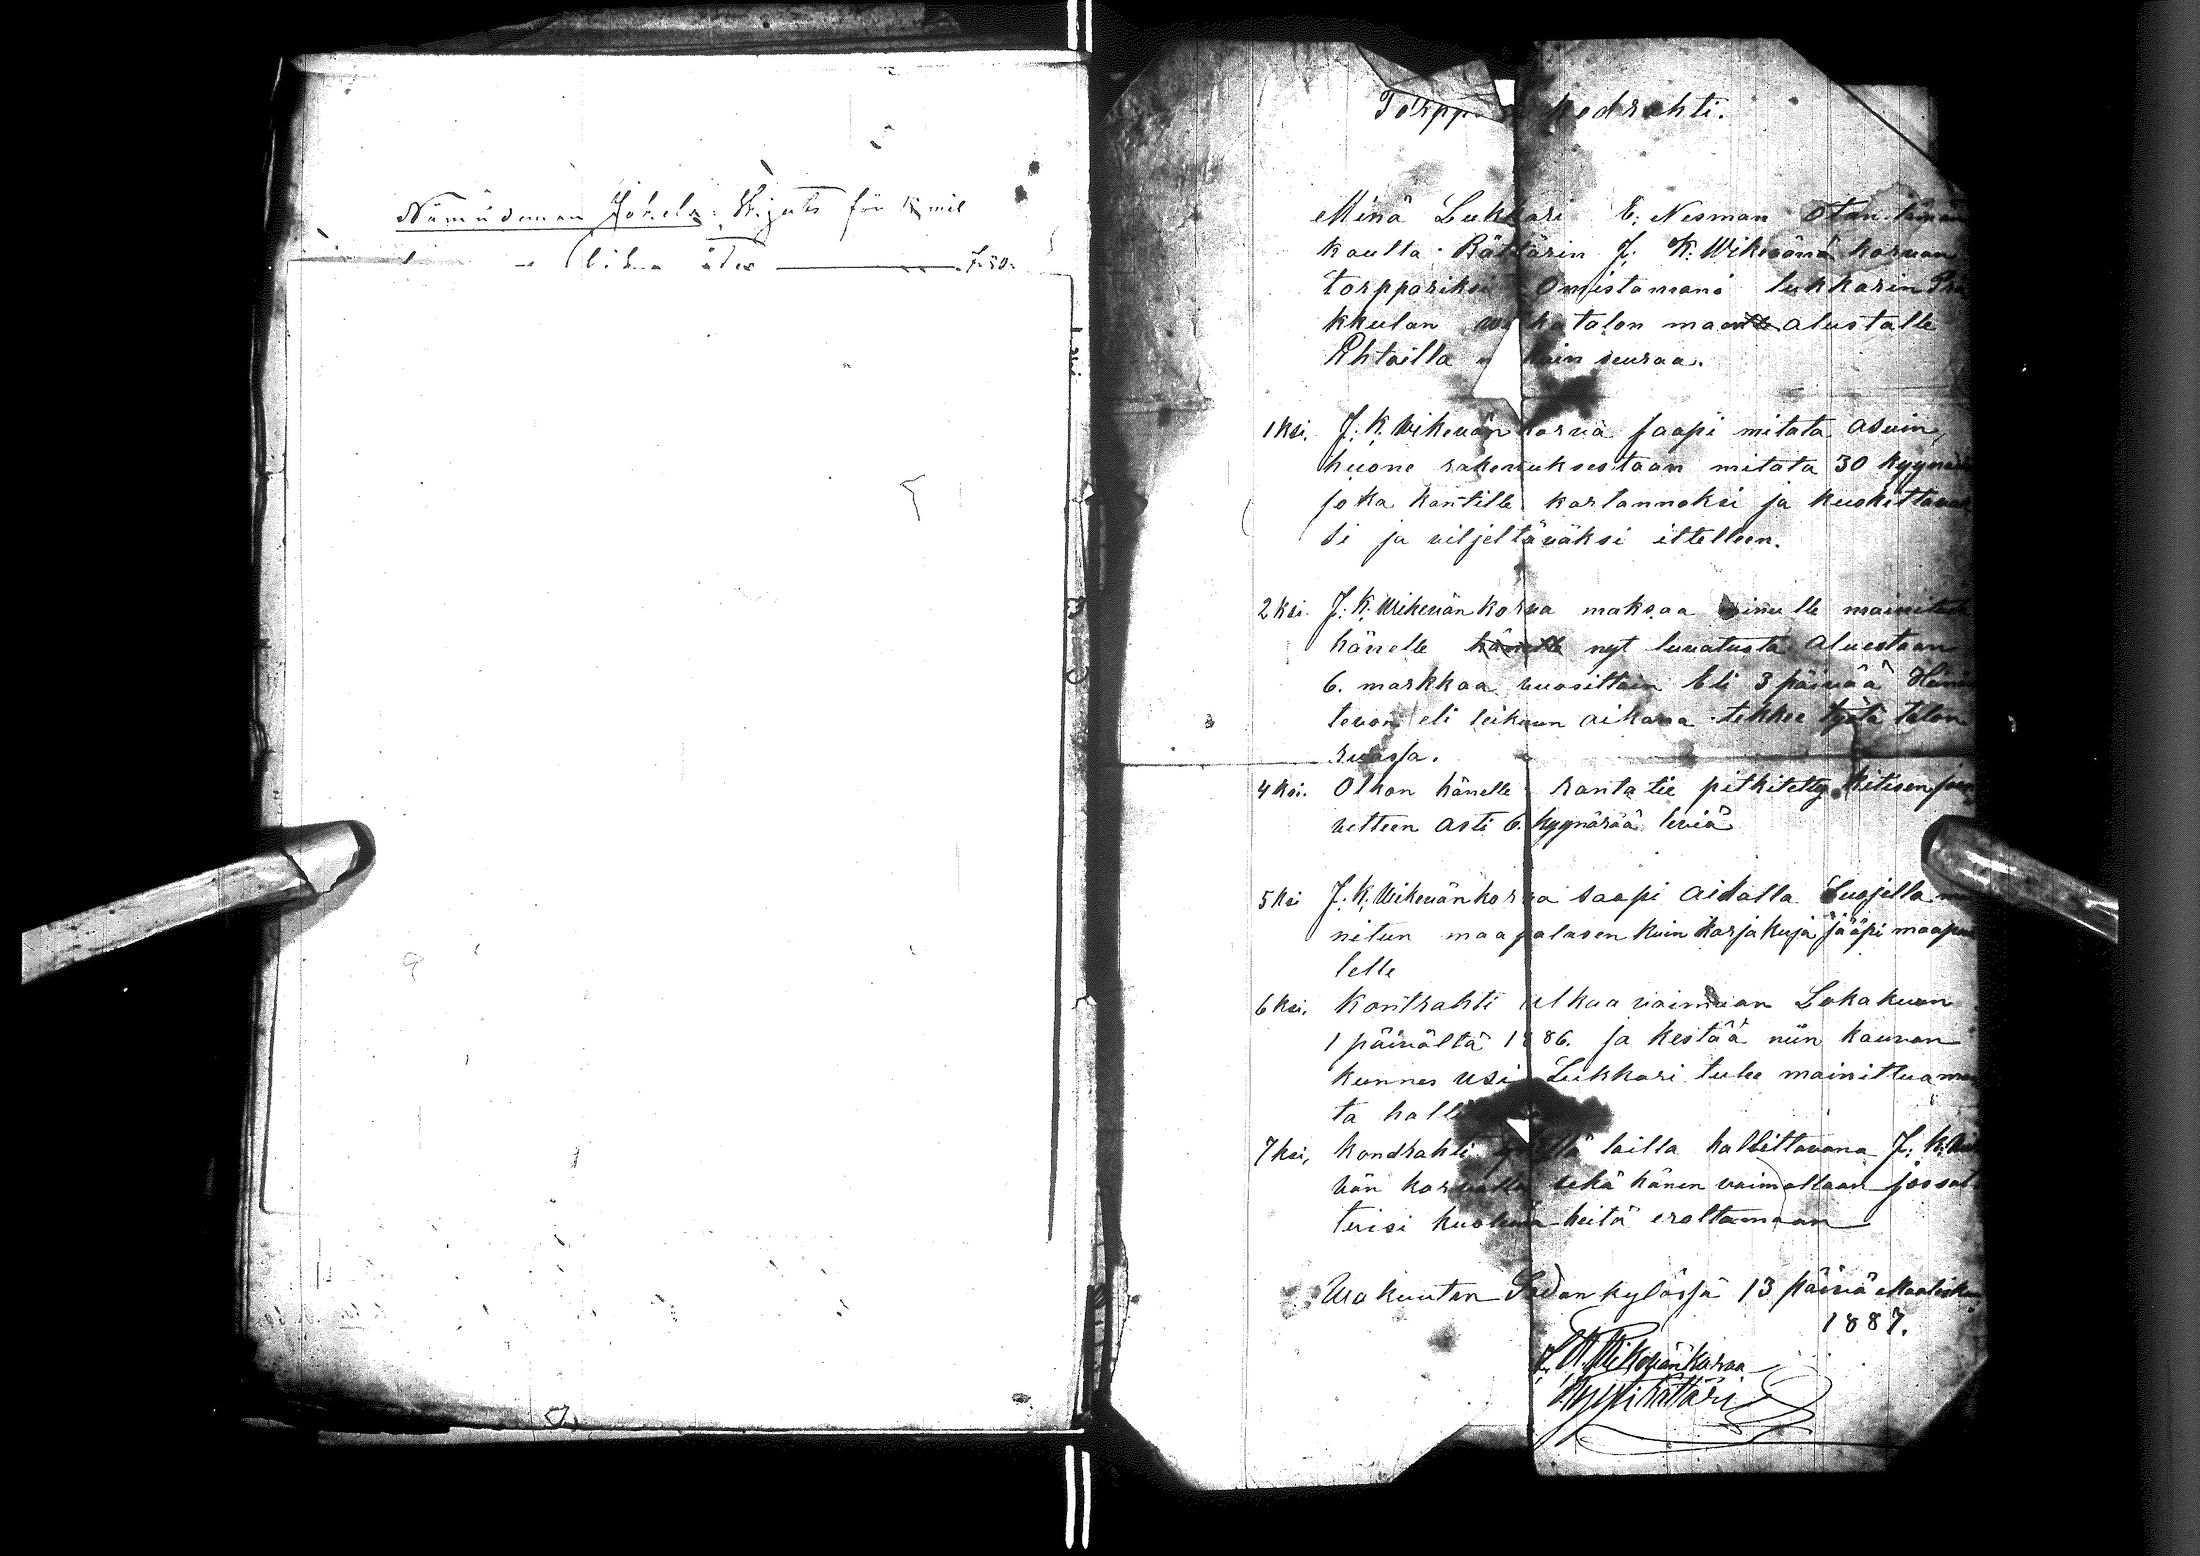 Nämndeman Jokela: Skjuts för 15 mil
7.50.
Torppa kodrahti.
Minä Lukkari E. Nesman Otan tämän
kautta Rättärin J. K. Wikevänä korvan
torppariksi Omistamani lukkarin
kkulan talon maalle alustalle
Ehtoilla kuin seuraa.
1ksi. J. K. Wikevän korva saapi mitata asuin,
huone rakennuksestaan mitata 30 kyynärä
joka kantille kartannoksi ja kuokittavak
si ja viljeltäväksi ittelleen.
2ksi. J. K. Wikevän korva maksaa minulle mainitusta
hänelle hänelle nyt luvatusta Alueestaan
6. markkaa vuosittain Eli 3 päivää Heinän
tevon eli leikuun aikana tekkee työtä talon
ruassa.
4ksi. Olkon hänelle ranta tie pitkitetty Kitisen joen
vetteen Asti 6. kyynärää leviä
5ksi J. K. Wikevän korva saapi Aidalla Suojella
nitun maapalasen kuin karjakuja jääpi maapa
lelle
6ksi, Kontrahti alkaa voimaan Lokakuun
1 päivältä 1886. ja kestää niin kauvan
kunnes usi Lukkari tulee mainittua maa
ta hall
7ksi, Kondrahti tällä lailla hallittavana J. K. Wike
vän korvalla sekä hänen vaimollaan jos sat
tuisi kuolema heitä eroittamaan
Wakuutan Sodankylässä 13 päivä Maalisku
1887.
J. K. Wikevänkorva